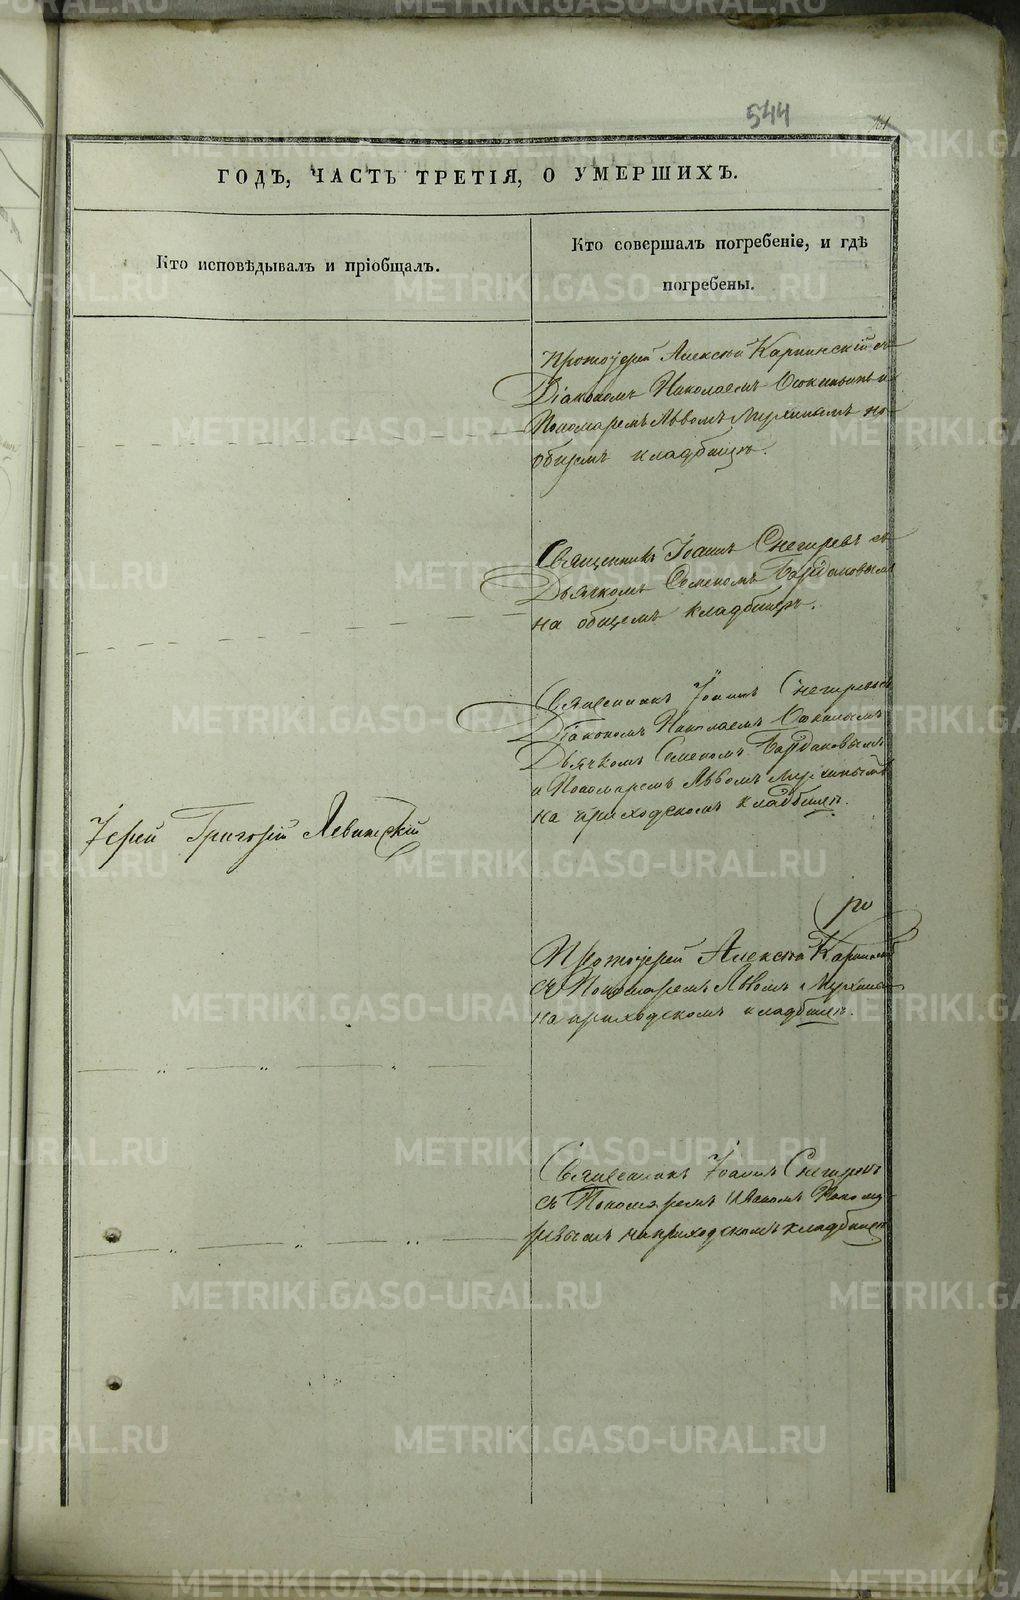 544
ГОДЪ, ЧАСТЬ ТРЕТІЯ, О УМЕРШИХЪ.
Кто исповѣдывалъ и пріобщалъ.
Кто совершалъ погребеніе, и гдѣ
погребены.
Протоіерей Алексѣй Карпинскій съ
Діакономъ Николаемъ и
Пономаремъ Львомъ на
общемъ кладбищѣ.
Священникъ Іоаннъ Снегиревъ съ
Дьячкомъ Семеномъ Бардаковымъ
на общемъ кладбищѣ.
Священникъ Іоаннъ Снегиревъ съ
Діакономъ Николаемъ
Дьячкомъ Семеномъ Бардаковымъ
и Пономаремъ Львомъ
на приходскомъ кладбищѣ.
Іерей Григорій Левитскій
Протоіерей Алексѣй Карпинскій
съ Пономаремъ Львомъ
на приходскомъ кладбищѣ.
Священникъ Іоаннъ Снегиревъ
съ Пономаремъ
на приходскомъ кладбищѣ
METRIKI.GASO-URAL.RU